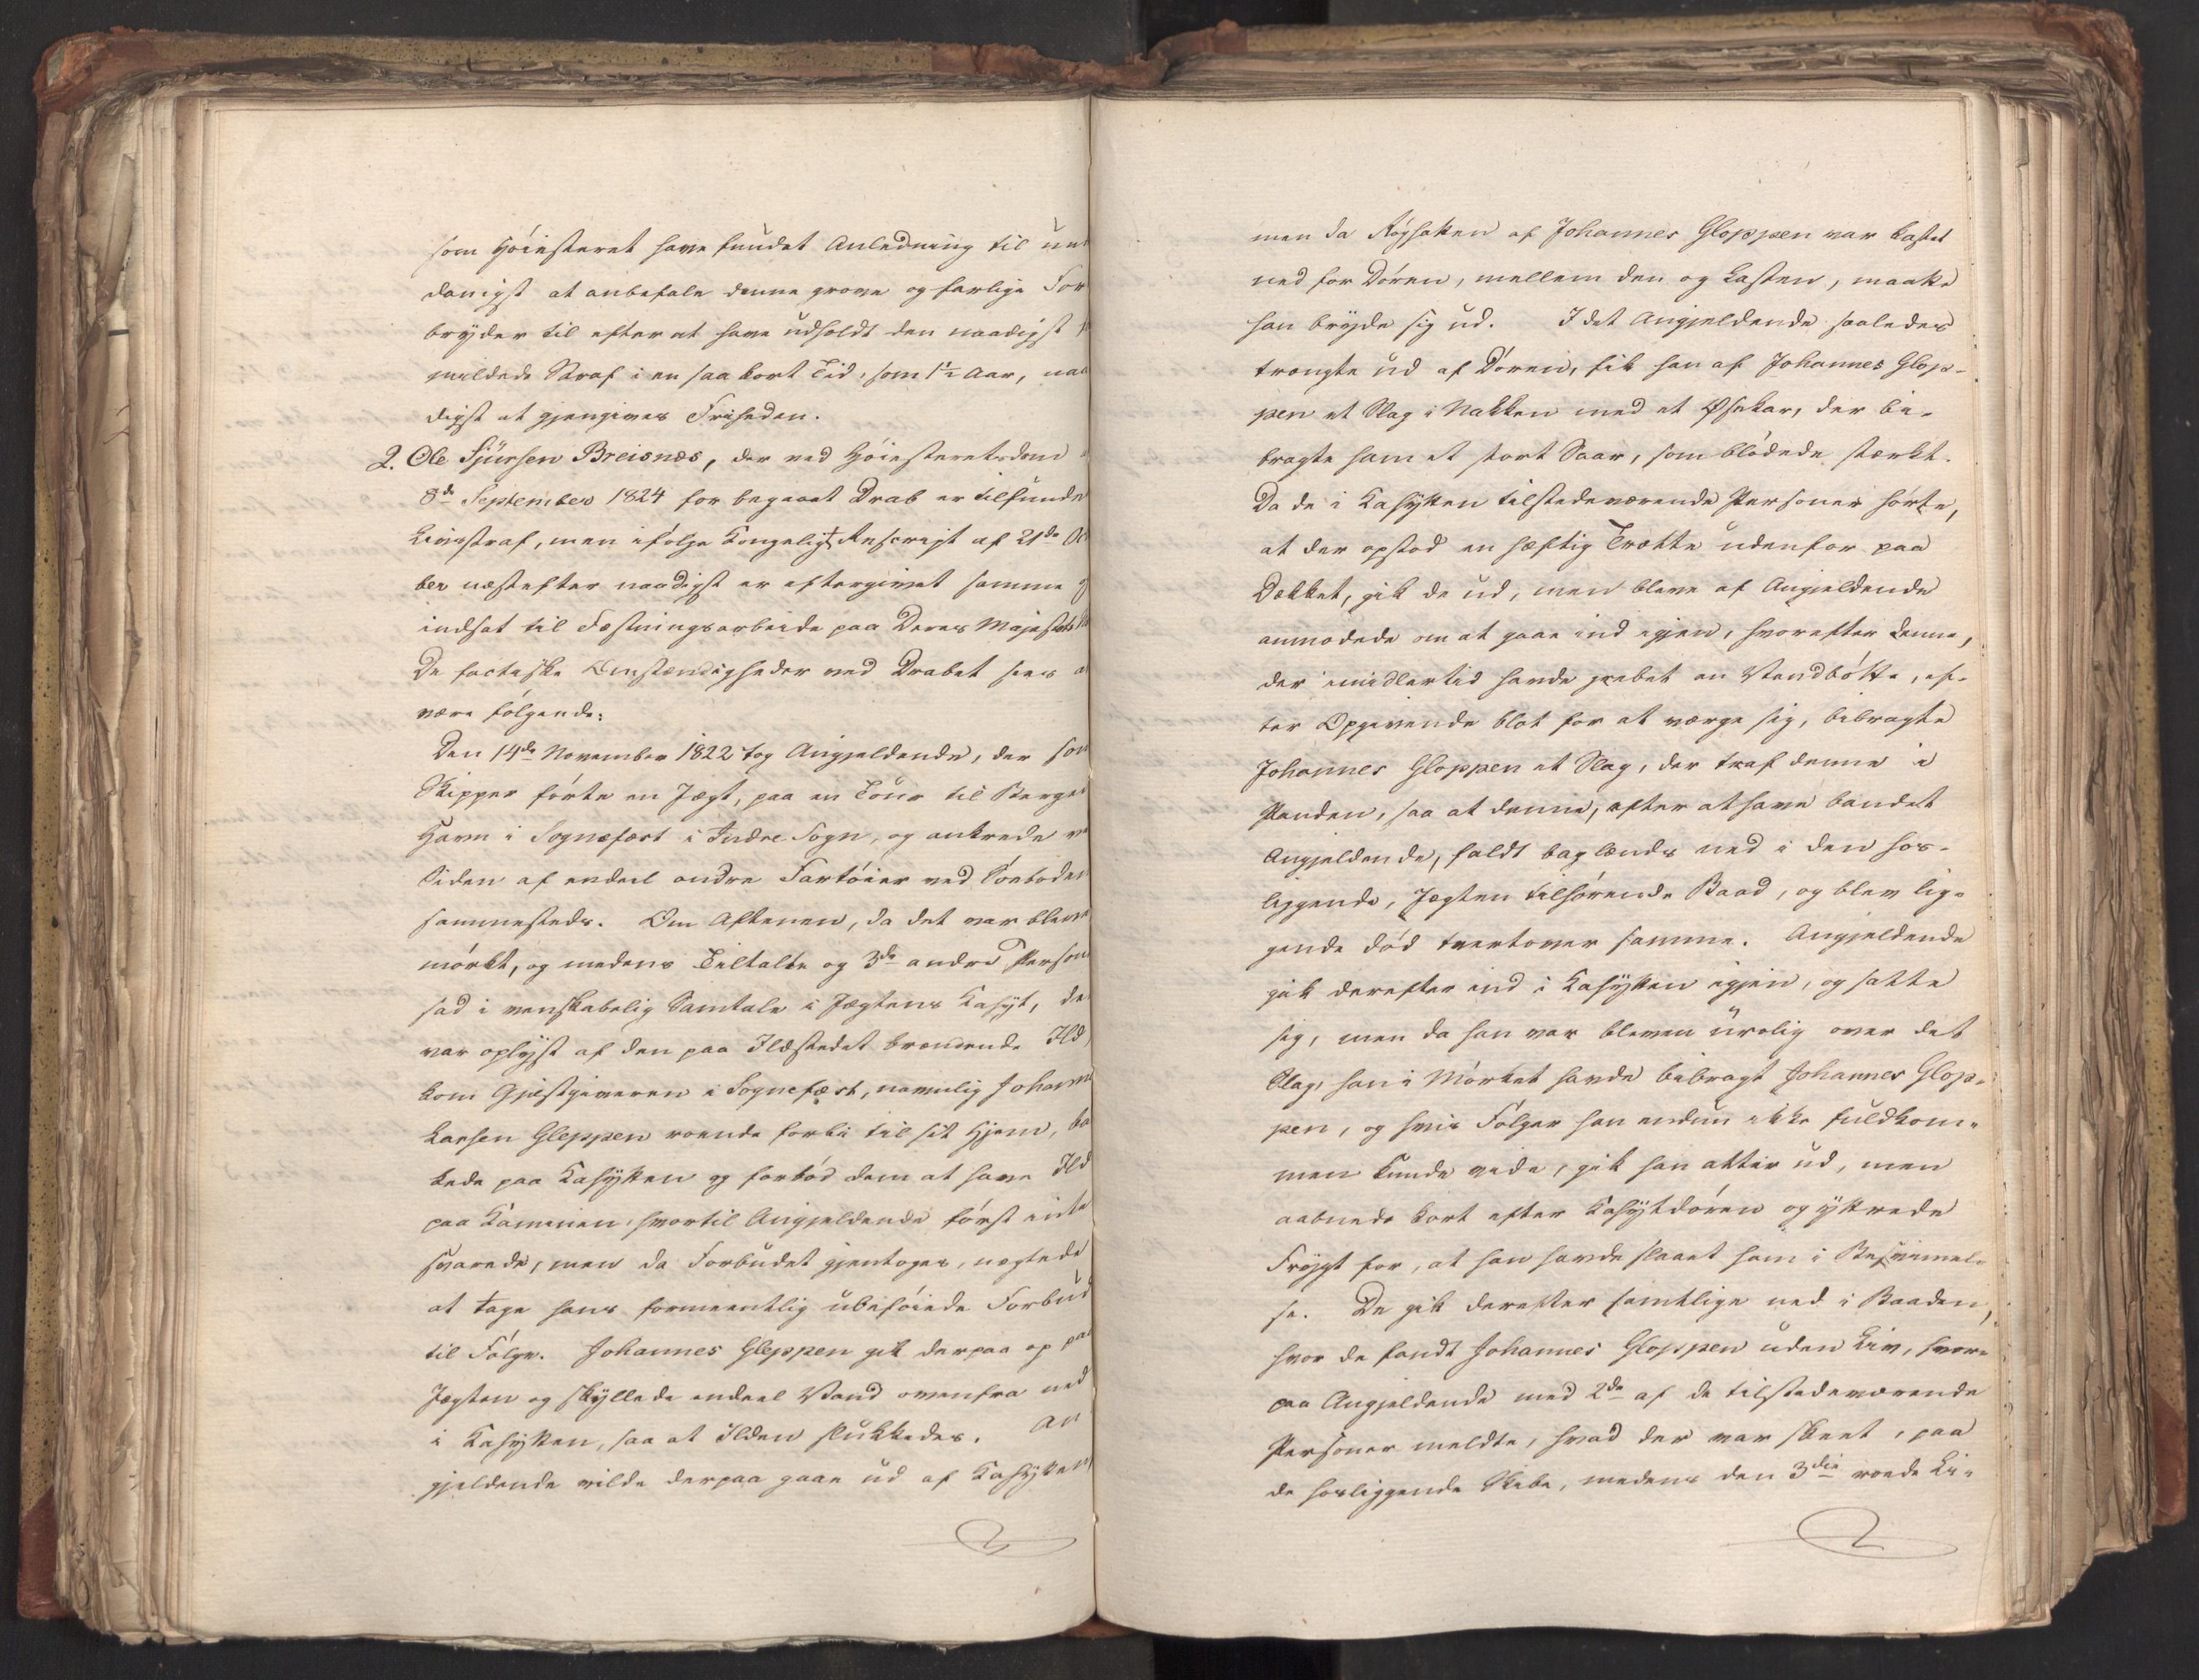 som Høiesteret have fundet Anledning til un
danigst at anbefale denne grove og farlige For
bryder til efter at have udholdt den naadigst
mildede Straf i en saa kort Tid, som 1½ Aar, naa
digst at gjengives Friheden.
2. Ole Sjursen Breisnæs, der ved Høiesteretsdom
8de September 1824 for begaaet Drab er tilfunde
Livsstraf, men ifølge Kongeligt Rescript af 21de Oc
ber næstefter naadigst er eftergivet samme
indsat til Fæstningsarbeide paa Deres Majestæts
De factiske Omstændigheder ved Drabet sees a
være følgende:
Den 14de November 1822 tog Angjeldende, der som
Skipper førte en Jægt, paa en Tour til Bergen
Havn i Sognefæst i Indre Sogn, og ankrede ve
Siden af endeel andre Fartøier ved Søeboden
sammesteds. Om Aftenen, da det var bleve
mørkt, og medens Tiltalte og 3de andre Person
sad i venskabelig Samtale i Jægtens Kahyt, de
var oplyst af den paa Ildstedet brændende Ild,
kom Gjæstgiveren i Sognefæst, navnlig Johanne
Larsen Gloppen roende forbi til sit Hjem, ba
kede paa Kahytten og forbød dem at have Ild
paa Kaminen, hvortil Angjeldende først inte
svarede, men da Forbudet gjentoges, nægtede
at tage hans formeentlig ubeføiede Forbud
til Følge. Johannes Gloppen gik derpaa op paa
Jægten og skyllede endeel Vand ovenfra ned
i Kahytten, saa at Ilden slukkedes. An
gjeldende vilde derpaa gaae ud af Kahytten
men da Røghatten af Johannes Gloppen var kastet
ned for Døren, mellem den og Lasten, maatte
han bryde sig ud. I det Angjeldende saaledes
trængte ud af Døren, fik han af Johannes Glop-
pen et Slag i Nakken med et Øsekar, der bi-
bragte ham et stort Saar, som blødede stærkt.
Da de i Kahytten tilstedeværende Personer hørte,
at der opstod en hæftig Trætte udenfor paa
Dækket, gik de ud, men bleve af Angjeldende
anmodede om at gaae ind igjen, hvorefter denne,
der imidlertid havde grebet en Vandbøtte, ef-
ter Opgivende blot for at værge sig, bibragte
Johannes Gloppen et Slag, der traf denne i
Panden, saa at denne, efter at have bandet
Angjeldende, faldt baglænds ned i den hos-
liggende, Jægten tilhørende Baad, og blev lig-
gende død tvertover samme. Angjeldende
gik derefter ind i Kahytten igjen, og satte
sig, men da han var bleven urolig over det
Slag, han i Mørket havde bibragt Johannes Glop-
pen, og hvis Følger han endnu ikke fuldkom-
men kunde vide, gik han atter ud, men
aabnede kort efter Kahytdøren og yttrede
Frygt for, at han havde slaaet ham i Besvimel-
se. De gik derefter samtlige ned i Baaden,
hvor de fandt Johannes Gloppen uden Liv, hvor-
paa Angjeldende med 2de af de tilstedeværende
Personer meldte, hvad der var skeet, paa
de hosliggende Skibe, medens den 3die roede Li-